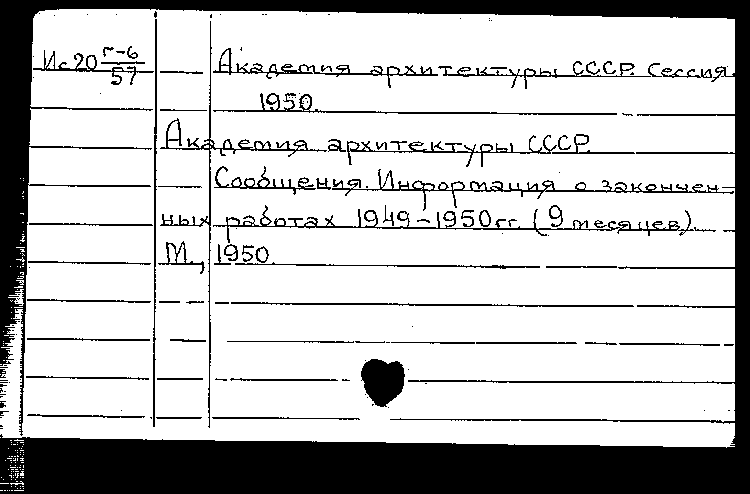 Ис20 г-6/57
Академия архитектуры СССР. Сессия.
1950.
Академия архитектуры СССР.
Сообщения. Информация о закончен-
ных работах 1949-1950гг. (9 месяцев).
М., 1950.